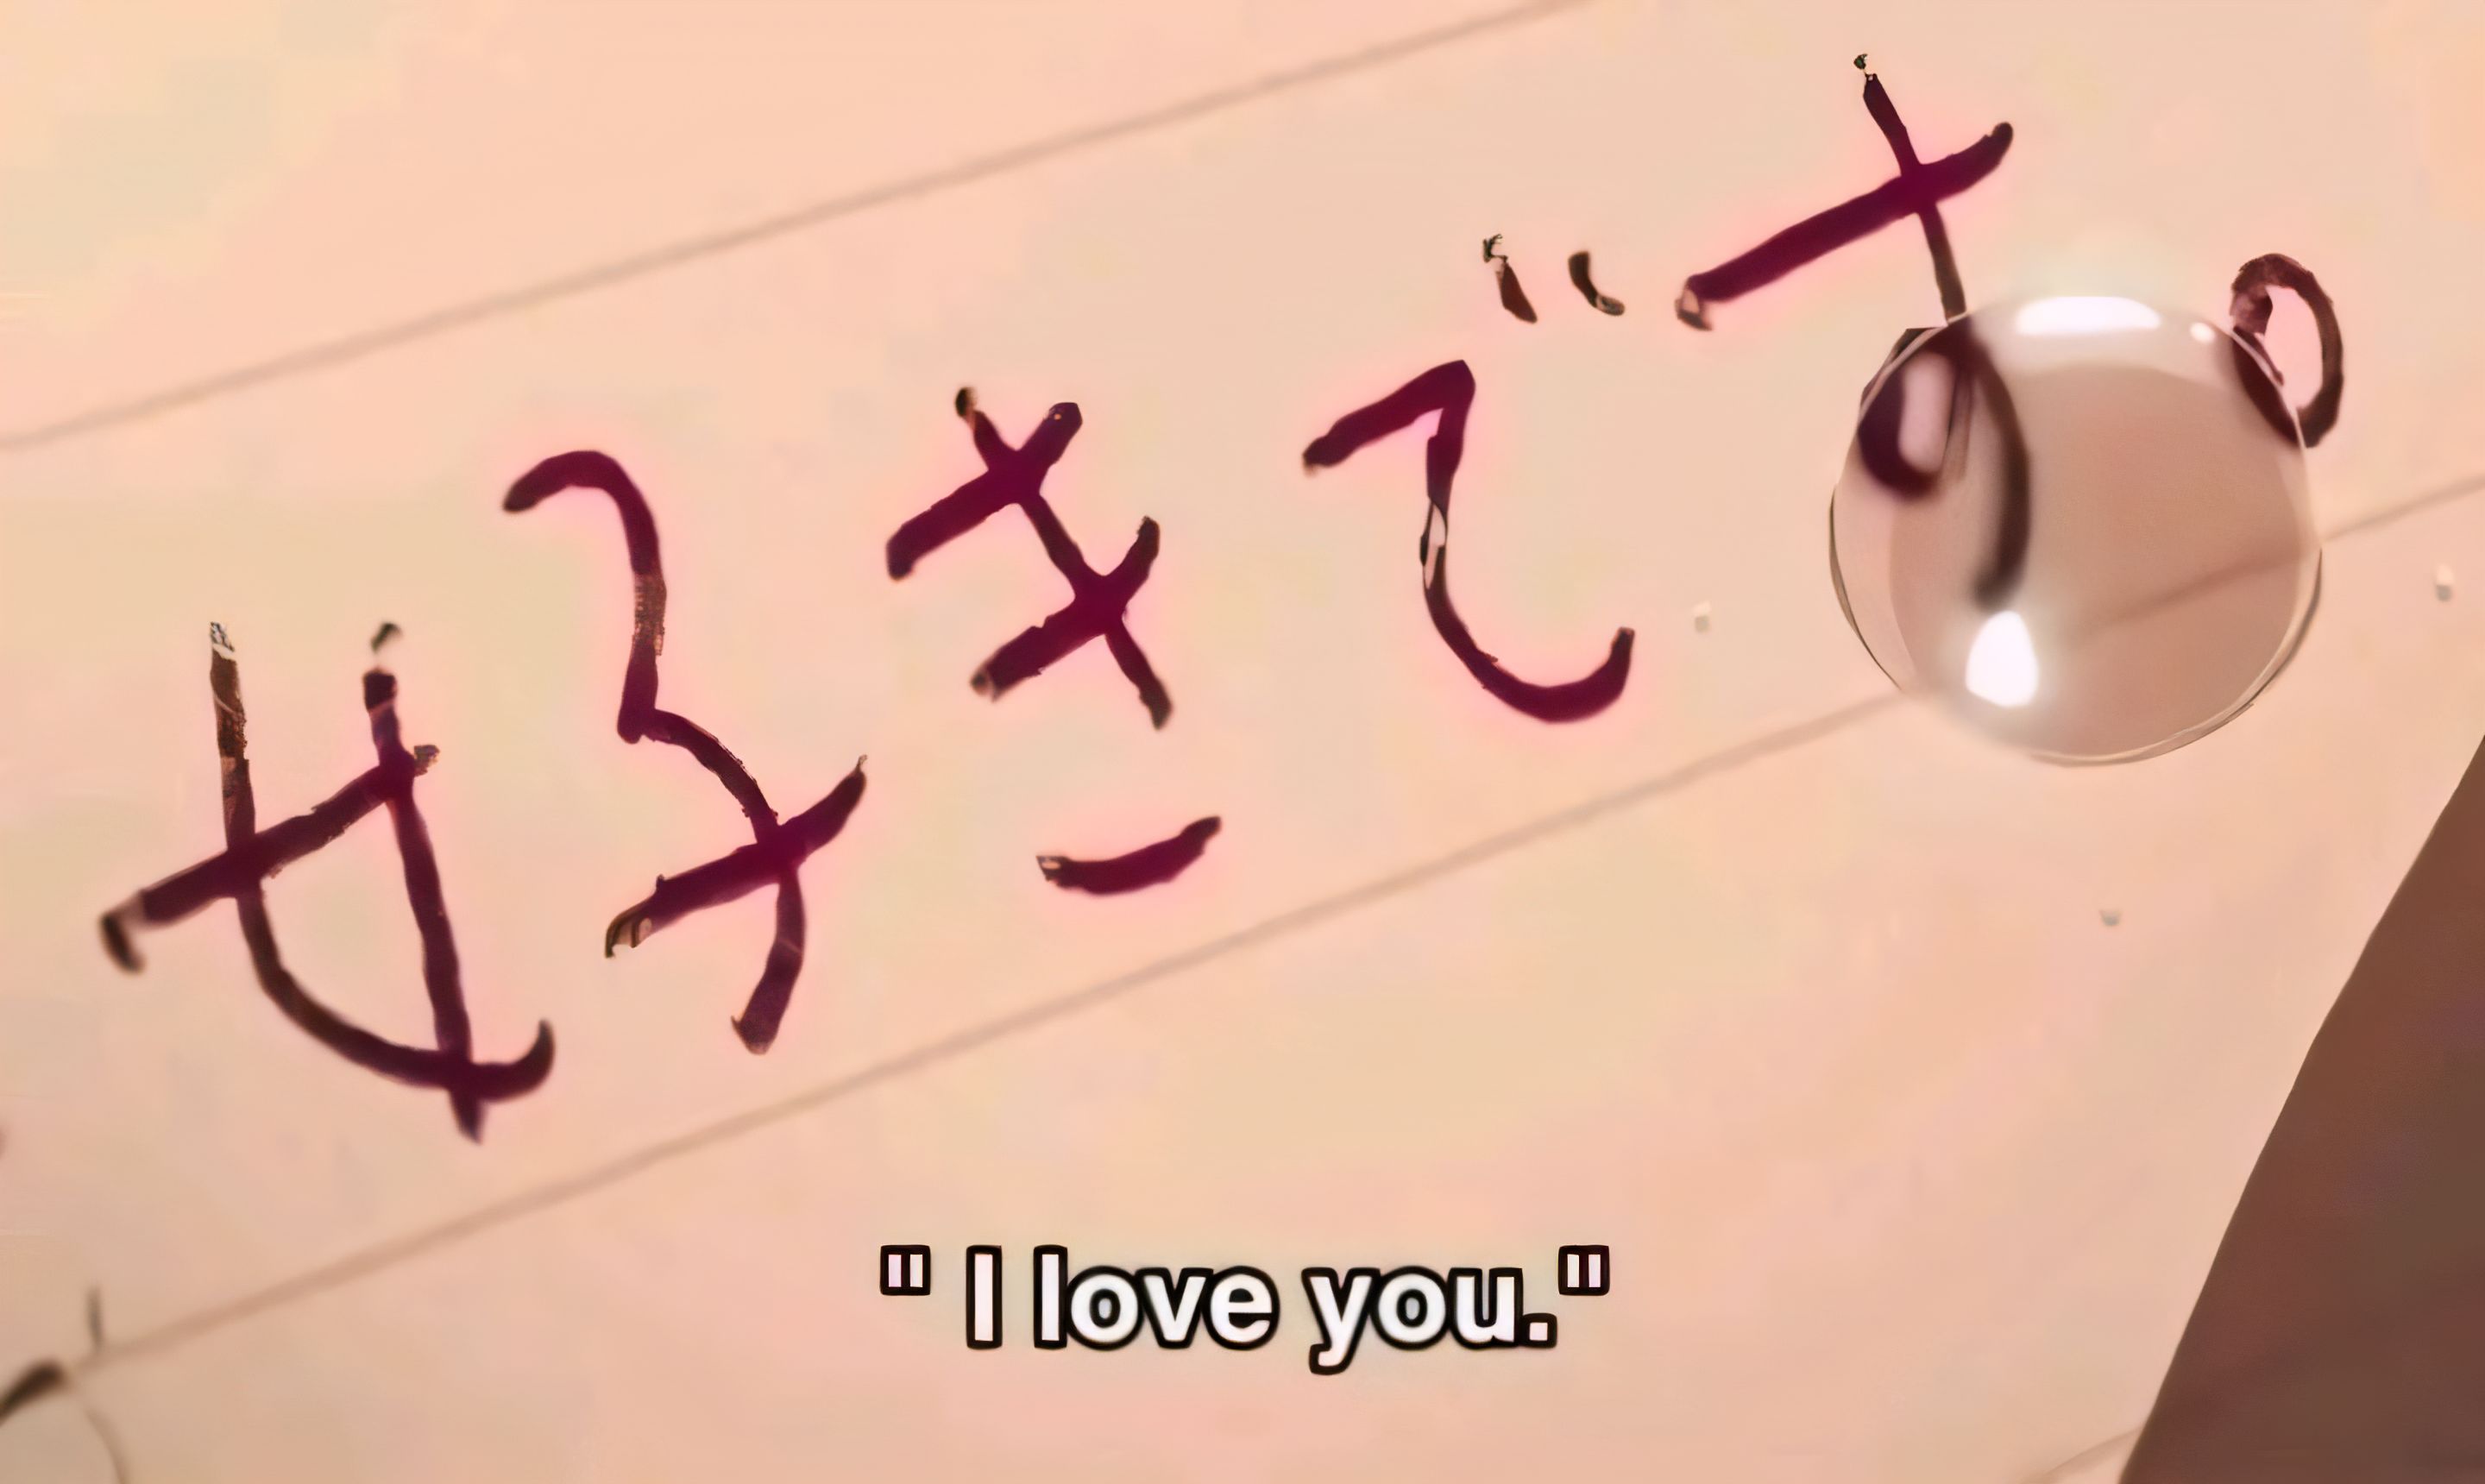 好きです。
" I love you."